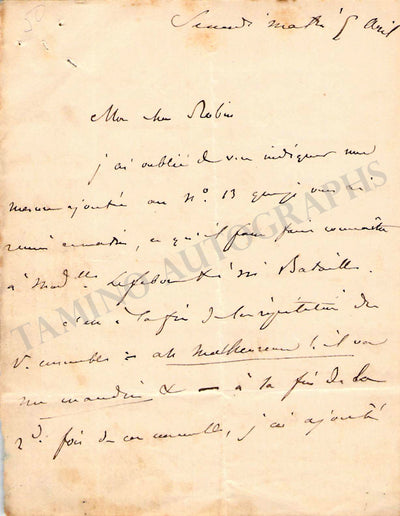 Samedi matin 5 Avril
Mon cher Robin
j'ai oublié de vous indiquer une
mesure ajoutée au nº 13 que je vous ai
remis ce matin, ce qu'il faut faire connaître
à Mad.lle Lefebvre et à Mr Bataille.
c'est à la fin de la répétition de
l'ensemble = ah malheureux ! il va
me maudire & — à la fin de la
2.de fois de cet ensemble, j'ai ajouté
50
TAMINO AUTOGRAPHS